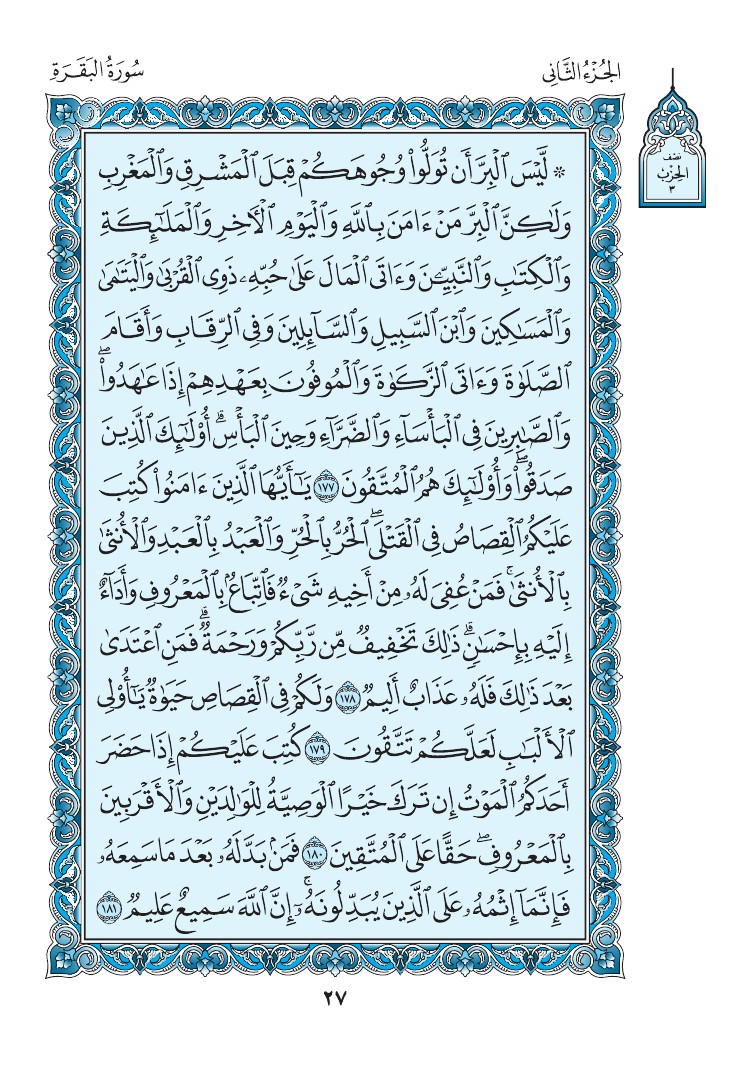 الجُزْءُ الثَّانِي
سُورَةُ البَقَرَةِ
نصف
الحزب
٣
۞ لَّيْسَ ٱلْبِرَّ أَن تُوَلُّوا۟ وُجُوهَكُمْ قِبَلَ ٱلْمَشْرِقِ وَٱلْمَغْرِبِ
وَلَٰكِنَّ ٱلْبِرَّ مَنْ ءَامَنَ بِٱللَّهِ وَٱلْيَوْمِ ٱلْءَاخِرِ وَٱلْمَلَٰٓئِكَةِ
وَٱلْكِتَٰبِ وَٱلنَّبِيِّۦنَ وَءَاتَى ٱلْمَالَ عَلَىٰ حُبِّهِۦ ذَوِى ٱلْقُرْبَىٰ وَٱلْيَتَٰمَىٰ
وَٱلْمَسَٰكِينَ وَٱبْنَ ٱلسَّبِيلِ وَٱلسَّآئِلِينَ وَفِى ٱلرِّقَابِ وَأَقَامَ
ٱلصَّلَوٰةَ وَءَاتَى ٱلزَّكَوٰةَ وَٱلْمُوفُونَ بِعَهْدِهِمْ إِذَا عَٰهَدُوا۟ۖ
وَٱلصَّٰبِرِينَ فِى ٱلْبَأْسَآءِ وَٱلضَّرَّآءِ وَحِينَ ٱلْبَأْسِۗ أُو۟لَٰٓئِكَ ٱلَّذِينَ
صَدَقُوا۟ۖ وَأُو۟لَٰٓئِكَ هُمُ ٱلْمُتَّقُونَ ١٧٧ يَٰٓأَيُّهَا ٱلَّذِينَ ءَامَنُوا۟ كُتِبَ
عَلَيْكُمُ ٱلْقِصَاصُ فِى ٱلْقَتْلَىۖ ٱلْحُرُّ بِٱلْحُرِّ وَٱلْعَبْدُ بِٱلْعَبْدِ وَٱلْأُنثَىٰ
بِٱلْأُنثَىٰۚ فَمَنْ عُفِىَ لَهُۥ مِنْ أَخِيهِ شَىْءٌ فَٱتِّبَاعٌۢ بِٱلْمَعْرُوفِ وَأَدَآءٌ
إِلَيْهِ بِإِحْسَٰنٍۗ ذَٰلِكَ تَخْفِيفٌ مِّن رَّبِّكُمْ وَرَحْمَةٌۗ فَمَنِ ٱعْتَدَىٰ
بَعْدَ ذَٰلِكَ فَلَهُۥ عَذَابٌ أَلِيمٌ ١٧٨ وَلَكُمْ فِى ٱلْقِصَاصِ حَيَوٰةٌ يَٰٓأُو۟لِى
ٱلْأَلْبَٰبِ لَعَلَّكُمْ تَتَّقُونَ ١٧٩ كُتِبَ عَلَيْكُمْ إِذَا حَضَرَ
أَحَدَكُمُ ٱلْمَوْتُ إِن تَرَكَ خَيْرًا ٱلْوَصِيَّةُ لِلْوَٰلِدَيْنِ وَٱلْأَقْرَبِينَ
بِٱلْمَعْرُوفِۖ حَقًّا عَلَى ٱلْمُتَّقِينَ ١٨٠ فَمَنۢ بَدَّلَهُۥ بَعْدَ مَا سَمِعَهُۥ
فَإِنَّمَآ إِثْمُهُۥ عَلَى ٱلَّذِينَ يُبَدِّلُونَهُۥٓۚ إِنَّ ٱللَّهَ سَمِيعٌ عَلِيمٌ ١٨١
٢٧